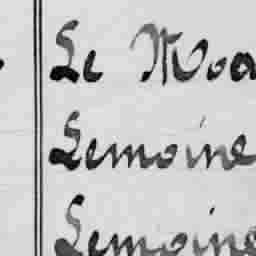 Le Moa
Lemoine
Lemoine